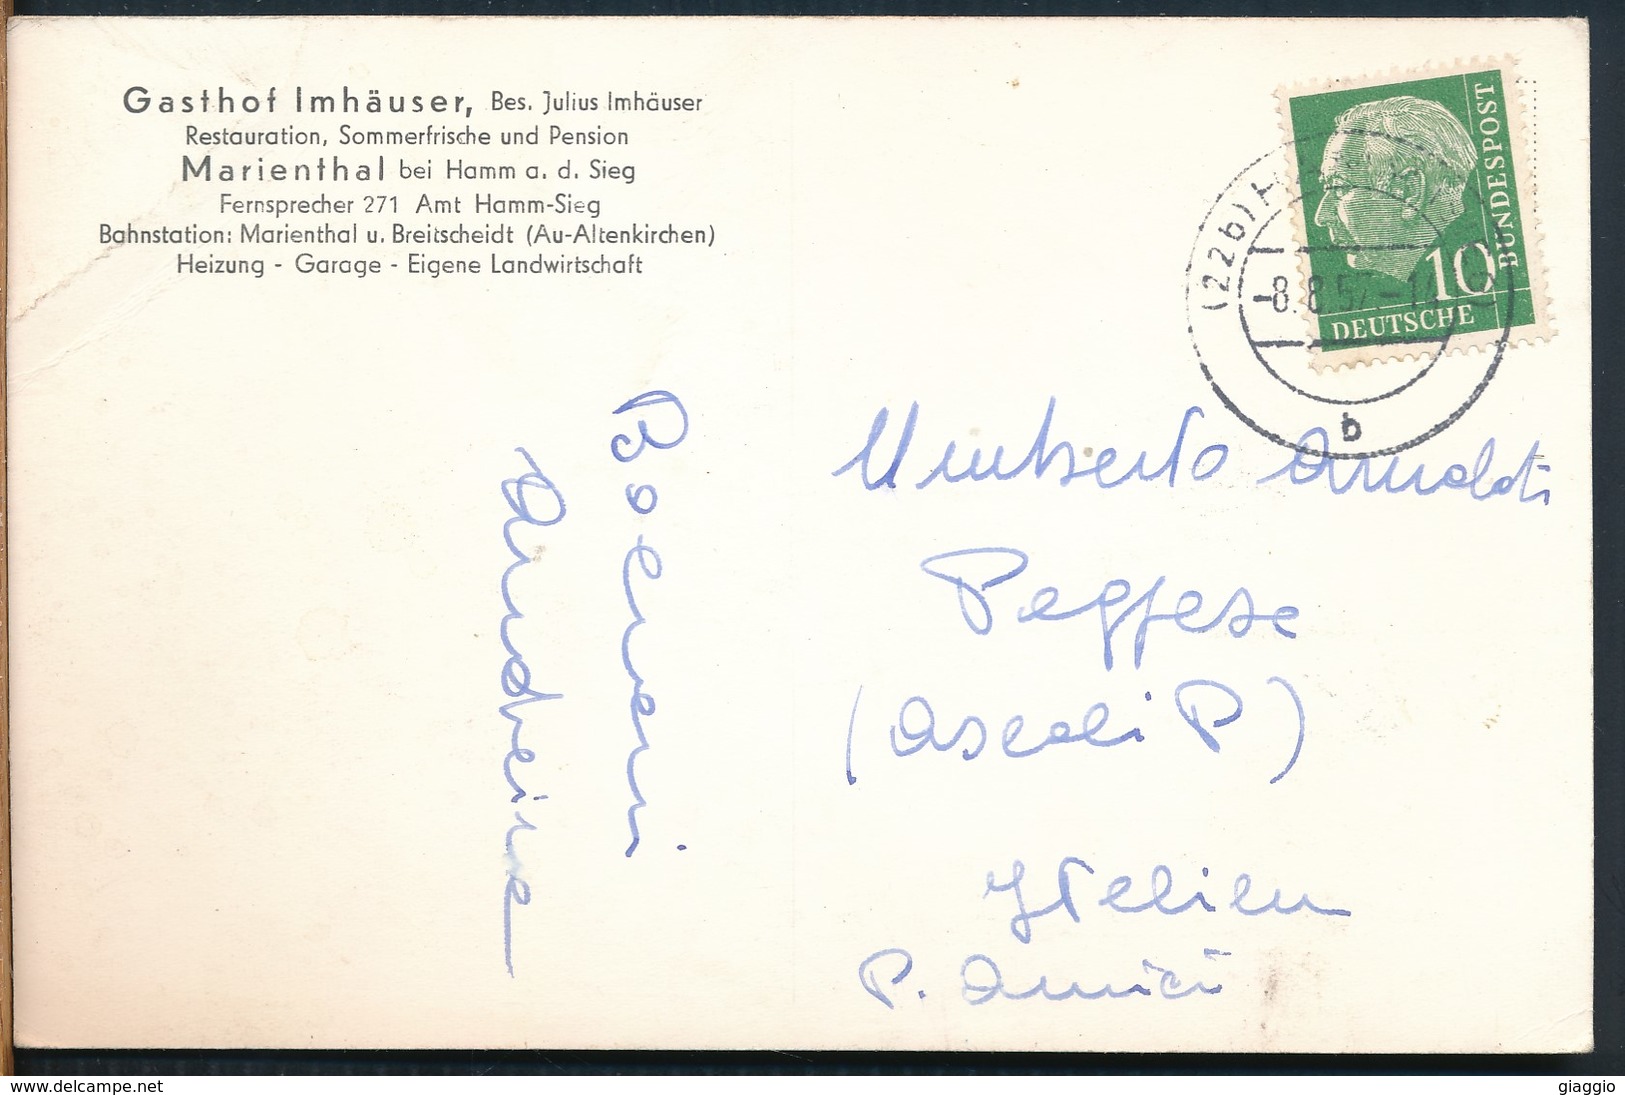 Gasthof Imhäuser, Bes. Julius Imhäuser
Restauration, Sommerfrische und Pension
Marienthal bei Hamm a. d. Sieg
Fernsprecher 271 Amt Hamm-Sieg
Bahnstation: Marienthal u. Breitscheidt (Au-Altenkirchen)
Heizung - Garage - Eigene Landwirtschaft
DEUTSCHE
BUNDESPOST
10
(22b)
-8.8.57-1
b
Umberto Arnaldi
(Ascoli P)
Italien
P. Amici
www.delcampe.net
giaggio